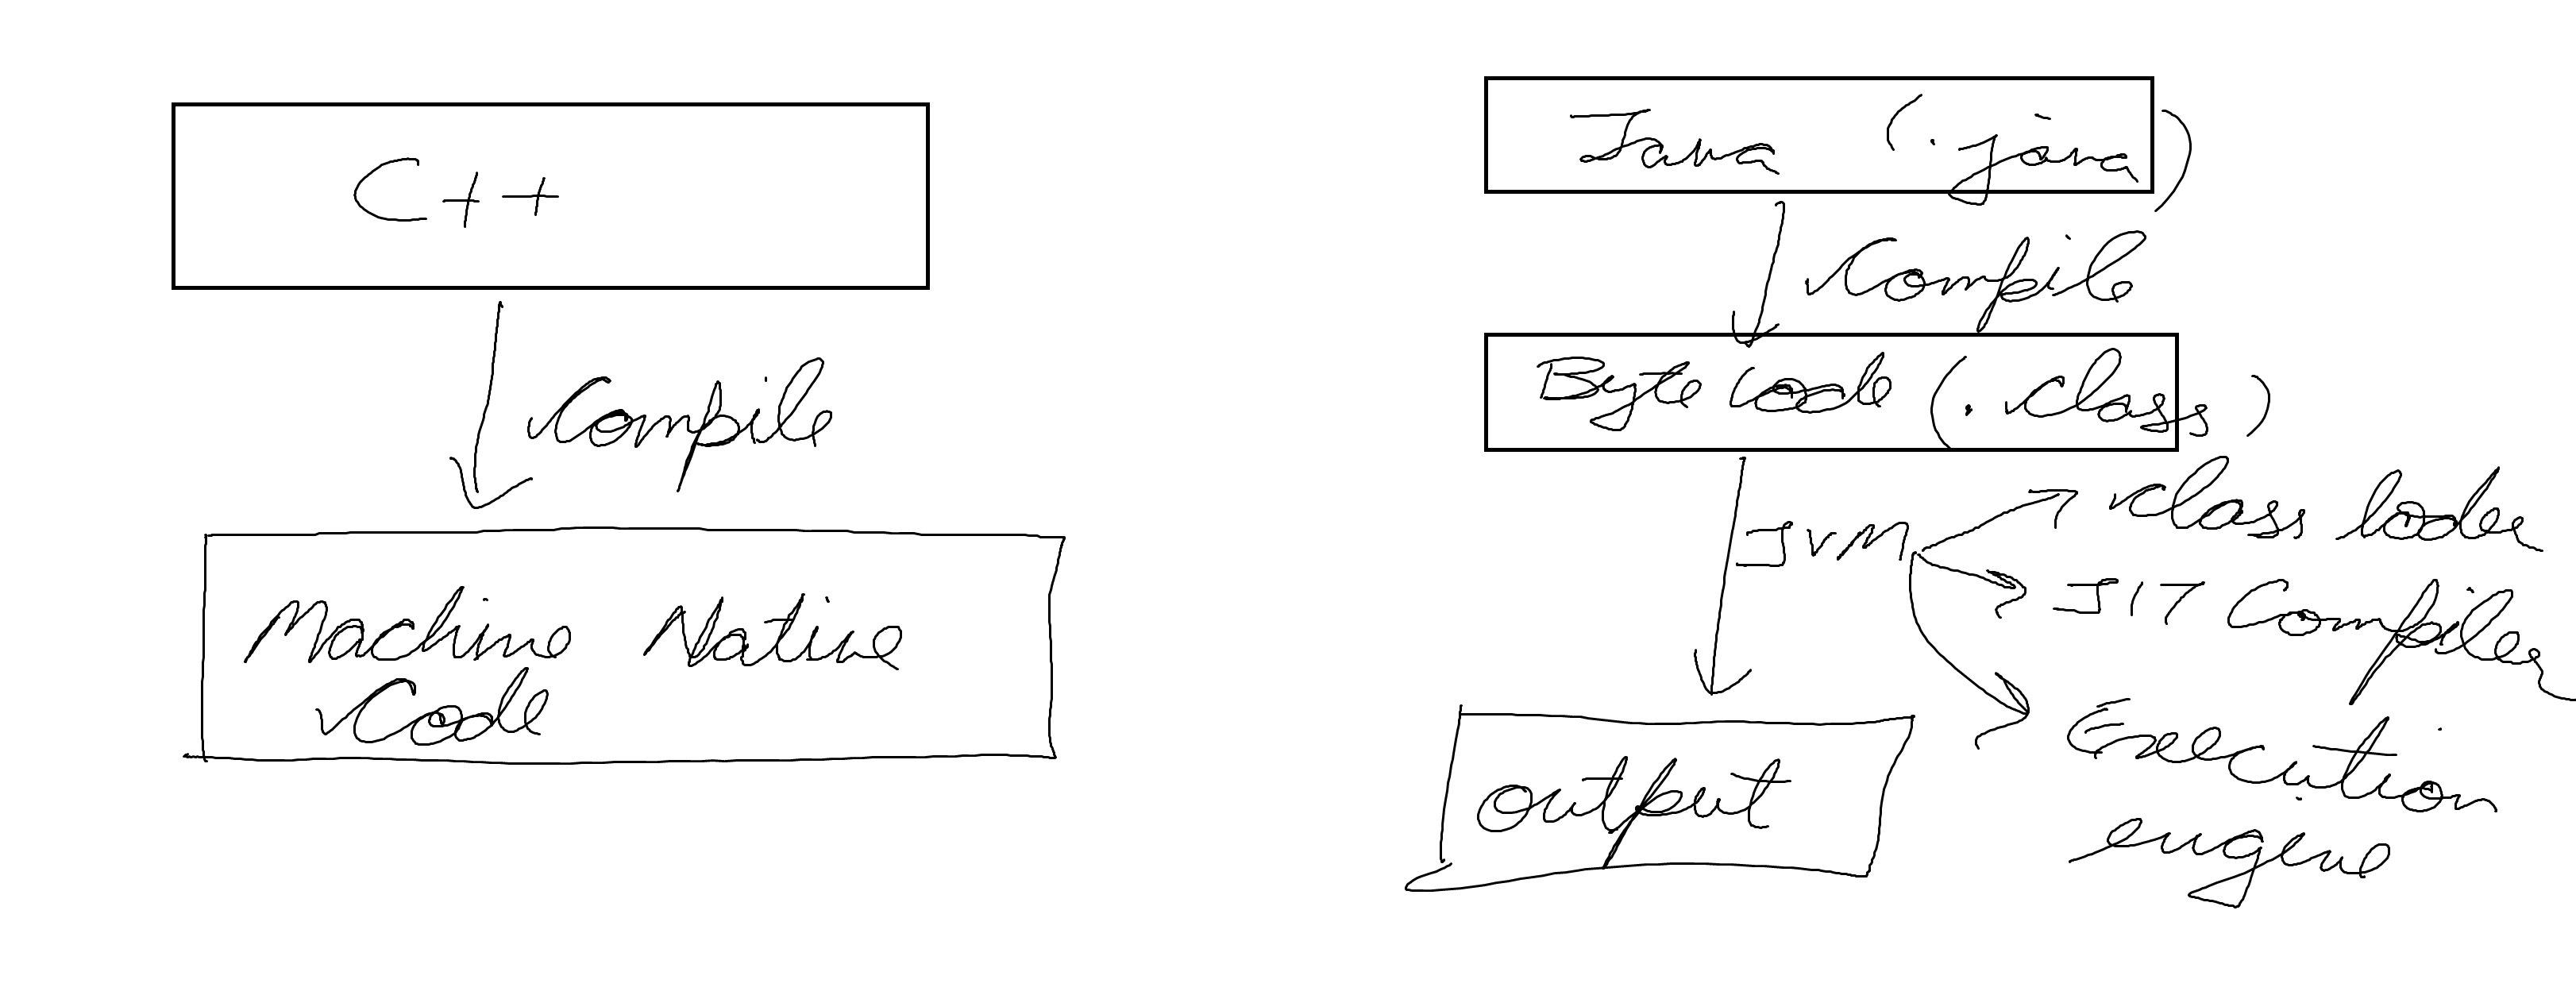 C++
Compile
Machine Native
Code
Java (.java)
Compile
Byte Code (.class)
JVM
Class loder
JIT Compiler
Execution
engine
output